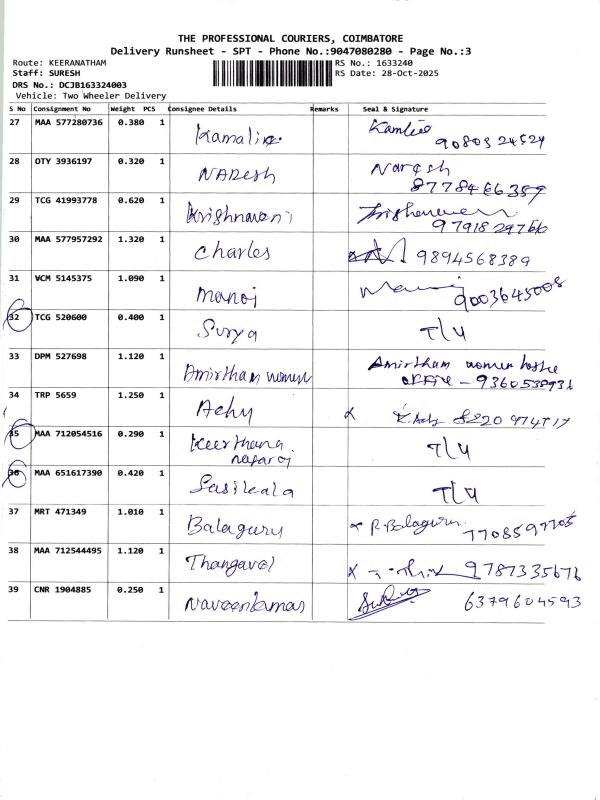 THE PROFESSIONAL COURIERS, COIMBATORE
Delivery Runsheet - SPT - Phone No.:9047080280 - Page No.:3
Route: KEERANATHAM RS No.: 1633240
Staff: SURESH RS Date: 28-Oct-2025
DRS No.: DCJB163324003
Vehicle: Two Wheeler Delivery
S No Consignment No Weight PCS Consignee Details Remarks Seal & Signature
27 MAA 577280736 0.380 1 Kamalie
28 OTY 3936197 0.320 1 NAResh Naresh
8778466359
29 TCG 41993778 0.620 1 Krishnaveni
9791829766
30 MAA 577957292 1.320 1 Charles 9894568389
31 VCM 5145375 1.090 1 manoj
9003645008
32 TCG 520600 0.400 1 Surya T/4
33 DPM 527698 1.120 1 Amirtham women Amirtham women
34 TRP 5659 1.250 1 Achy
35 MAA 712054516 0.290 1 Keerthana T/4
36 MAA 651617390 0.420 1 Sasikala T/4
37 MRT 471349 1.010 1 Balaguru R. Balaguru
7708597705
38 MAA 712544495 1.120 1 Thangavel 9787335676
39 CNR 1904885 0.250 1 Naveenkumar 6379604593